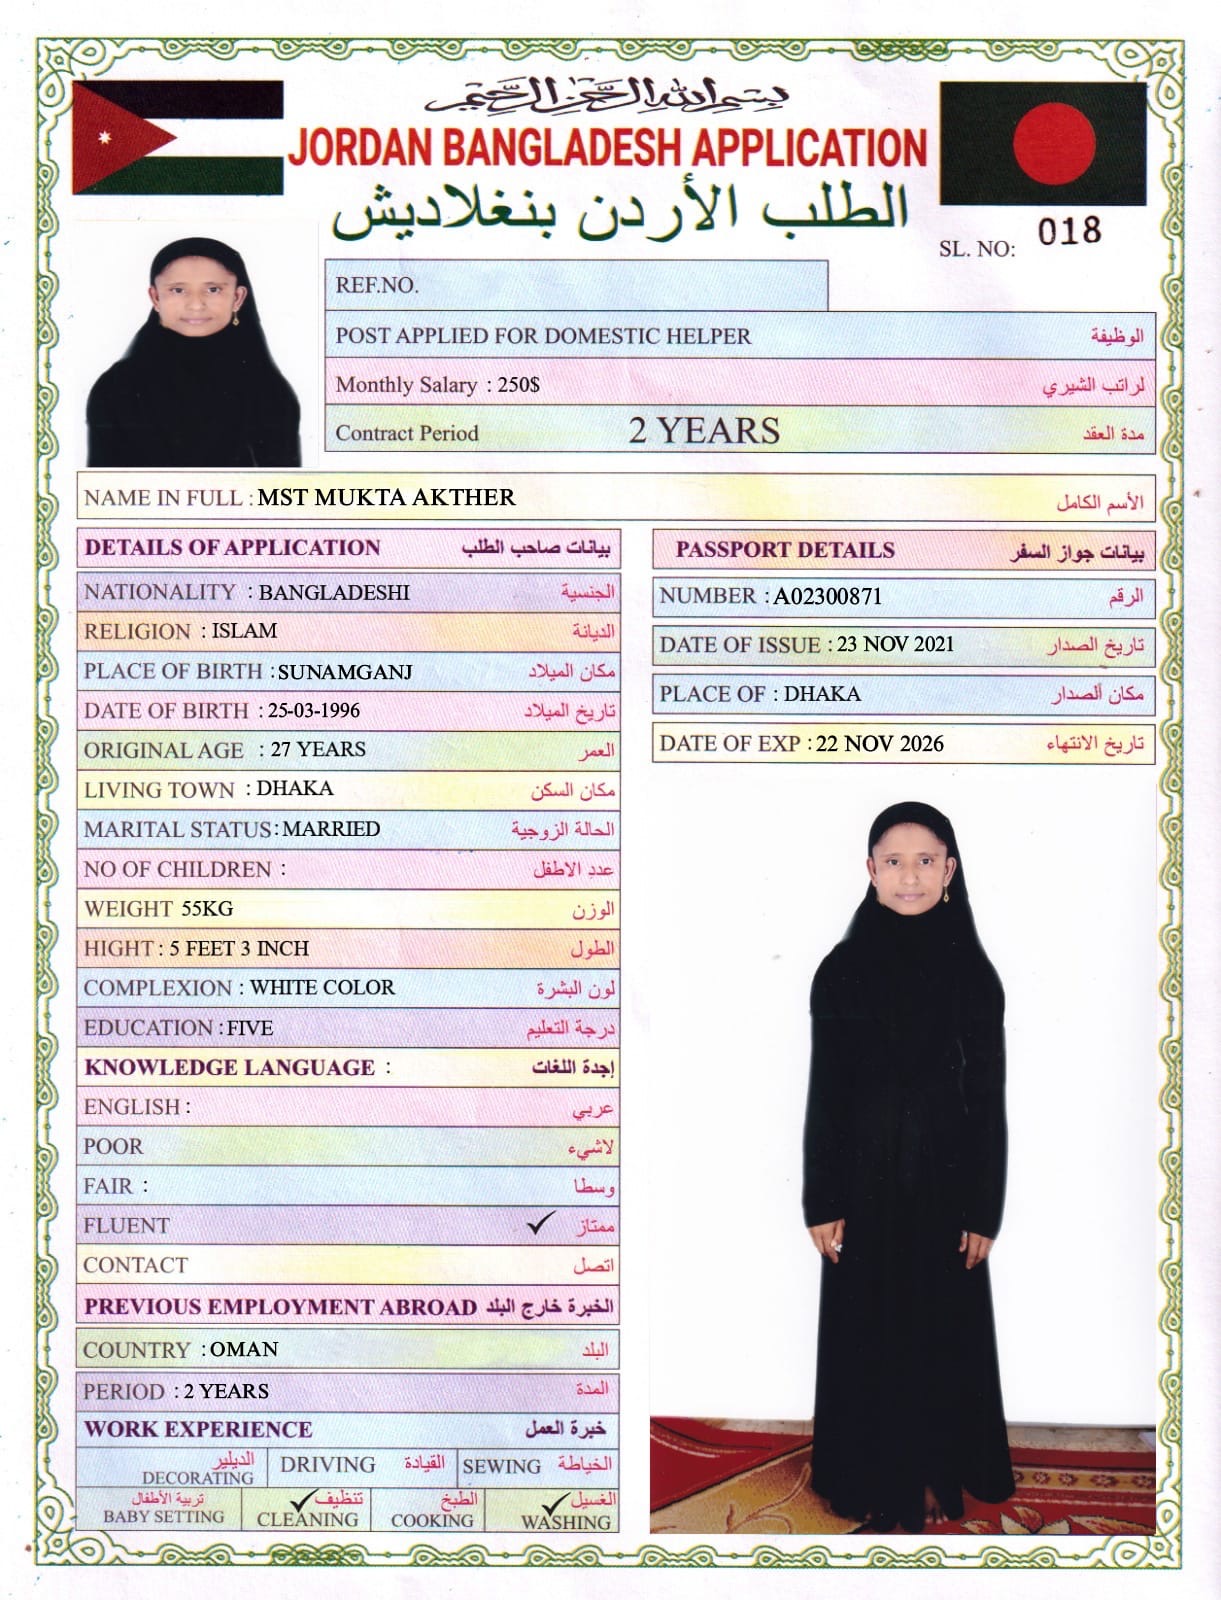 بسم الله الرحمن الرحيم
JORDAN BANGLADESH APPLICATION
الطلب الأردن بنغلاديش
SL. NO: 018
REF.NO.
POST APPLIED FOR DOMESTIC HELPER الوظيفة
Monthly Salary : 250$ لراتب الشيري
Contract Period 2 YEARS مدة العقد
NAME IN FULL : MST MUKTA AKTHER الأسم الكامل
DETAILS OF APPLICATION بيانات صاحب الطلب
NATIONALITY : BANGLADESHI الجنسية
RELIGION : ISLAM الديانة
PLACE OF BIRTH : SUNAMGANJ مكان الميلاد
DATE OF BIRTH : 25-03-1996 تاريخ الميلاد
ORIGINAL AGE : 27 YEARS العمر
LIVING TOWN : DHAKA مكان السكن
MARITAL STATUS : MARRIED الحالة الزوجية
NO OF CHILDREN : عدد الاطفل
WEIGHT 55KG الوزن
HIGHT : 5 FEET 3 INCH الطول
COMPLEXION : WHITE COLOR لون البشرة
EDUCATION : FIVE درجة التعليم
KNOWLEDGE LANGUAGE : إجدة اللغات
ENGLISH : عربي
POOR لاشيء
FAIR : وسطا
FLUENT ✓ ممتاز
CONTACT اتصل
PREVIOUS EMPLOYMENT ABROAD الخبرة خارج البلد
COUNTRY : OMAN البلد
PERIOD : 2 YEARS المدة
WORK EXPERIENCE خبرة العمل
الديلير DECORATING
DRIVING القيادة
SEWING الخياطة
تربية الأطفال BABY SETTING
✓ تنظيف CLEANING
الطبخ COOKING
✓ الغسيل WASHING
PASSPORT DETAILS بيانات جواز السفر
NUMBER : A02300871 الرقم
DATE OF ISSUE : 23 NOV 2021 تاريخ الصدار
PLACE OF : DHAKA مكان ألصدار
DATE OF EXP : 22 NOV 2026 تاريخ الانتهاء